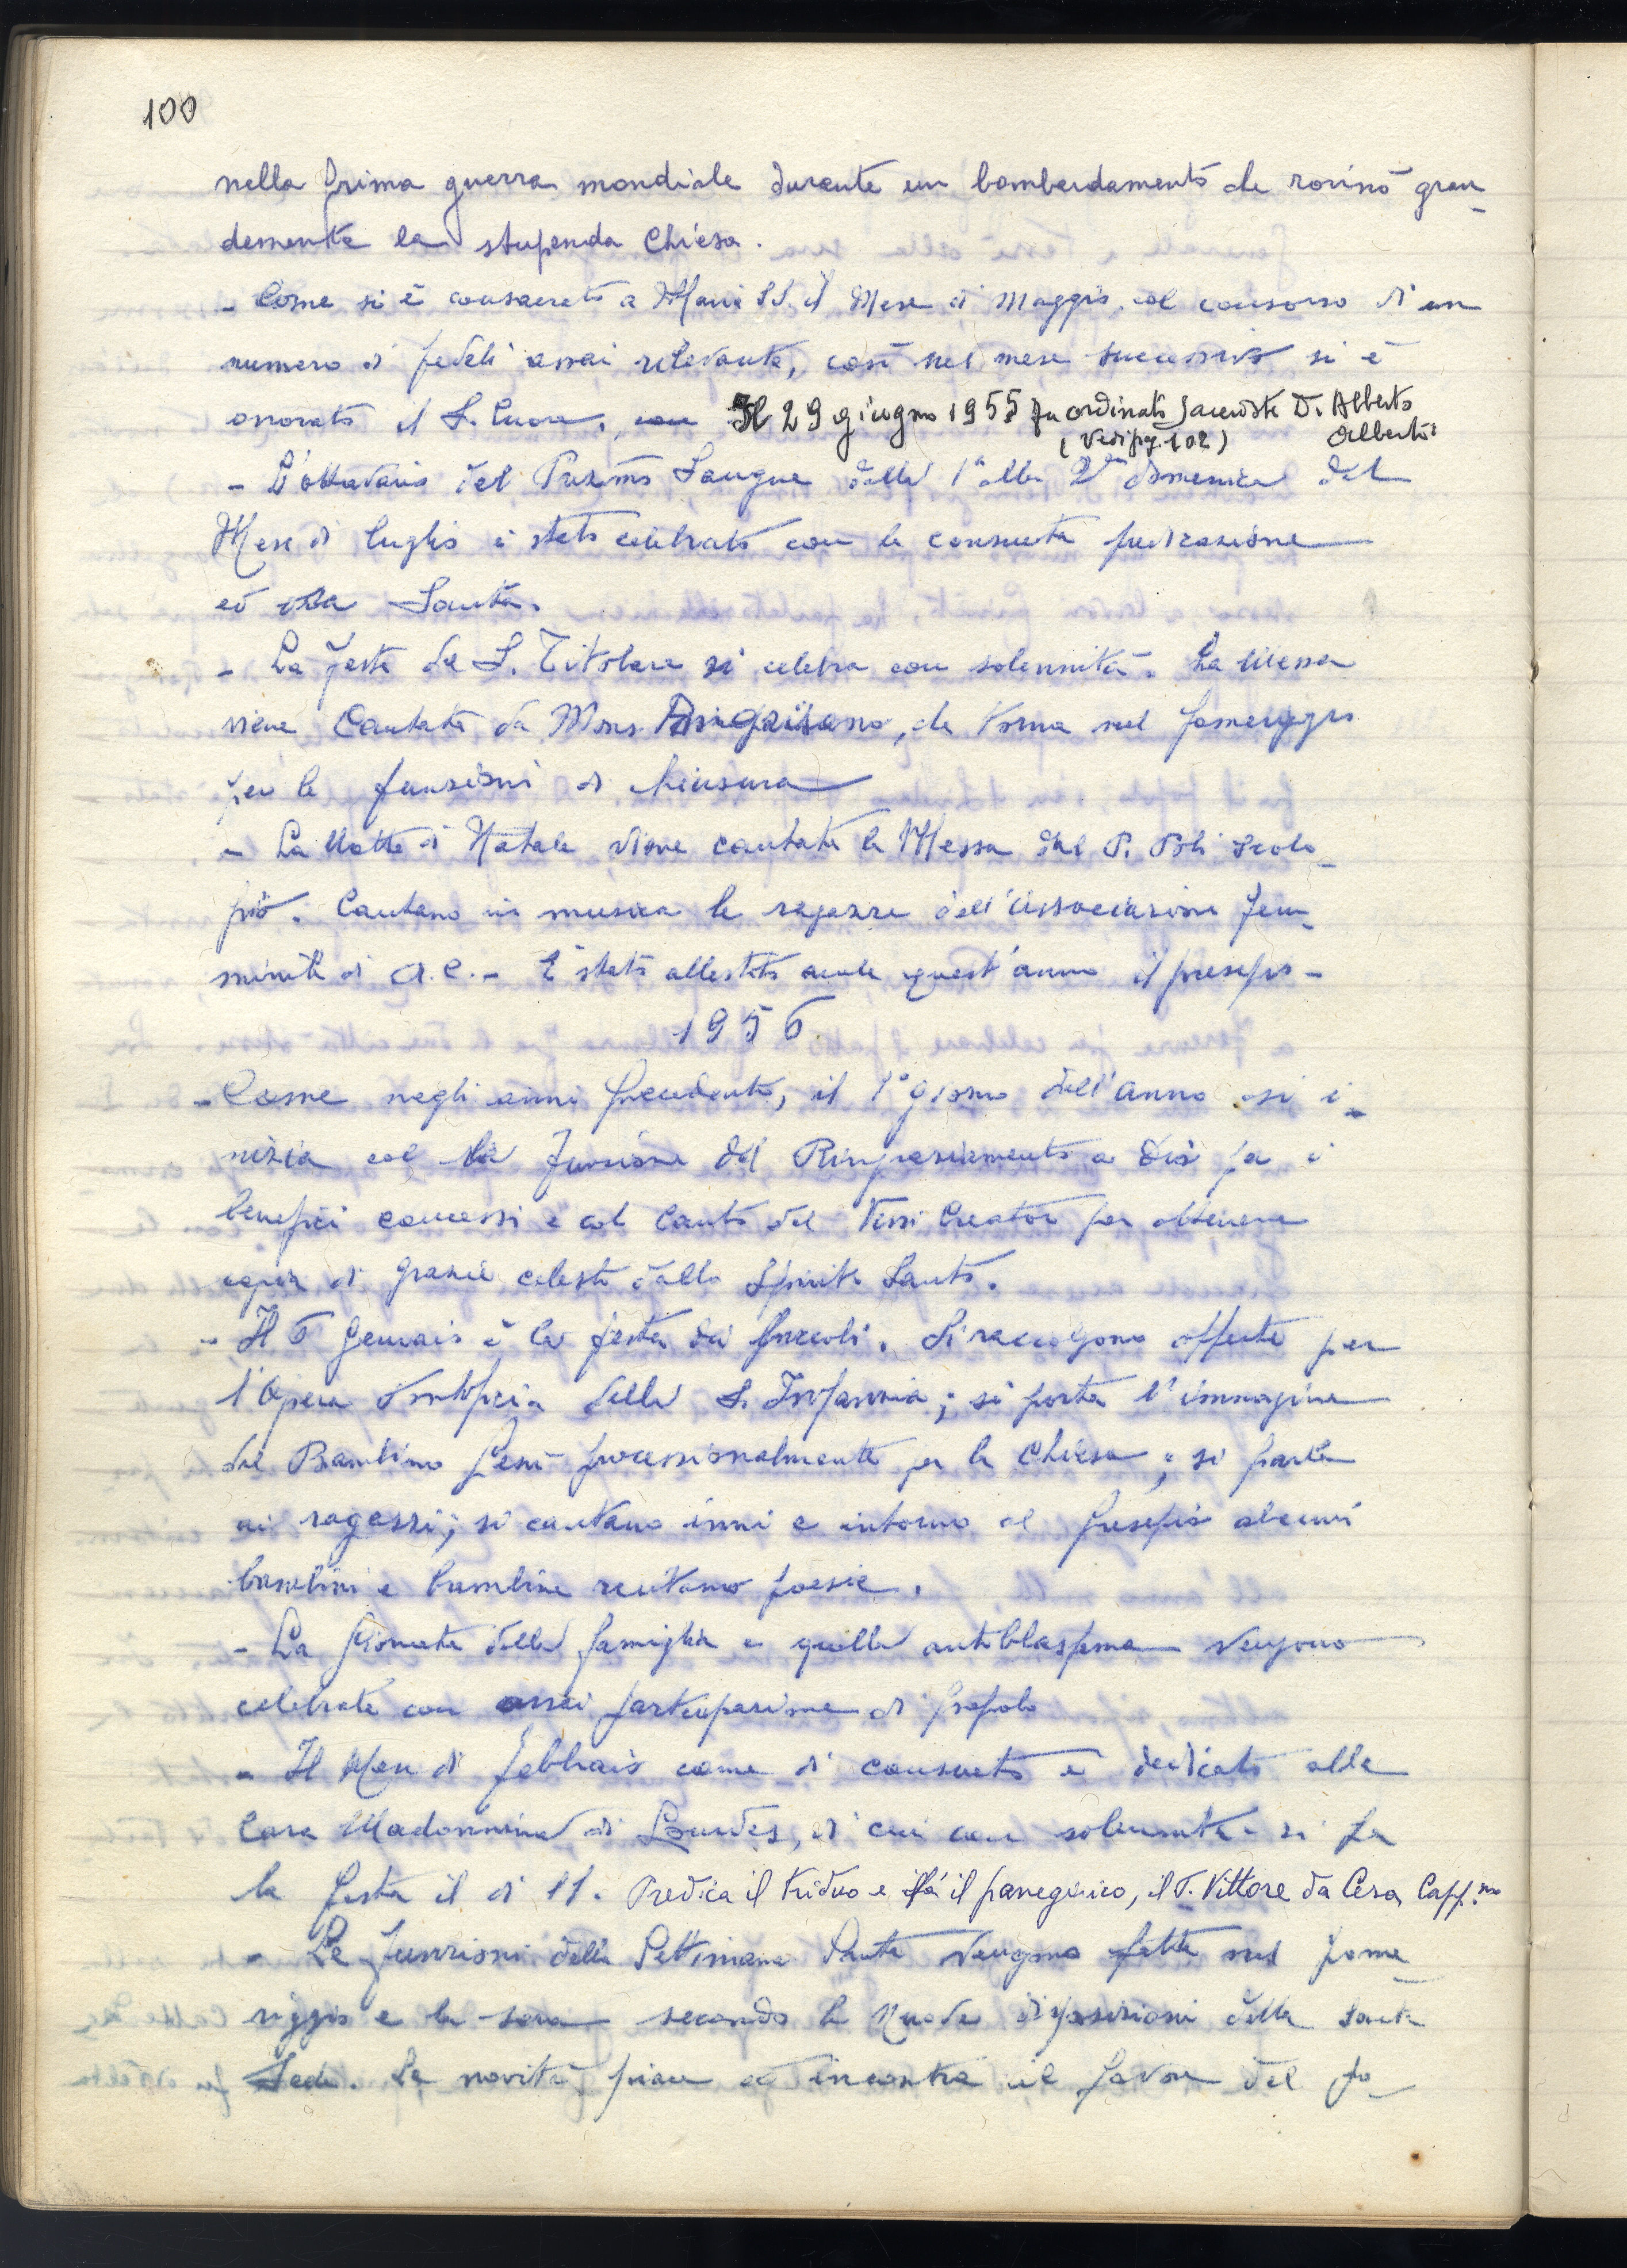 100
nella prima guerra mondiale durante un bombardamento che rovinò gran-
demente la stupenda Chiesa.
- Come si è consacrato a Maria SS. il Mese di Maggio, col concorso di un
numero di fedeli assai rilevante, così nel mese successivo si è
onorato il S. Cuore. Il 29 giugno 1955 fu ordinato sacerdote D. Alberto
(Vedi pag. 102) Alberti
- L'ottavario del Prez.mo Sangue dalla 1a alla 2a domenica del
Mese di luglio è stato celebrato con la consueta predicazione
ed ora Santa.
- La festa del S. Titolare si celebra con solennità. La Messa
viene Cantata da Mons. che torna nel pomeriggio
per le funzioni di chiusura
- La Notte di Natale viene cantata la Messa dal P. Poli Scolo-
pio. Cantano in musica le ragazze dell'Associazione Fem-
minile di A.C. - È stato allestito anche quest'anno il presepio -
1956
- Come negli anni precedenti, il 1° giorno dell'anno si i-
nizia col la funzione del Ringraziamento a Dio per i
benefici concessi e col Canto del Veni Creator per ottenere
copia di grazie celesti dallo Spirito Santo.
- Il 6 Gennaio è la festa dei piccoli. Si raccolgono offerte per
l'Opera Pontificia della S. Infanzia; si porta l'immagine
del Bambino Gesù processionalmente per la Chiesa; si parla
ai ragazzi; si cantano inni e intorno al presepio alcuni
bambini e bambine recitano poesie.
- La giornata della famiglia e quella antiblasfema vengono
celebrate con assai partecipazione di popolo
- Il Mese di Febbraio come di consueto è dedicato alla
Cara Madonnina di Lourdes, di cui con solennità si fa
la festa il dì 11. Predica il triduo e fa il panegirico, il P. Vittore da Cesa, Capp.no
- Le funzioni della Settimana Santa vengono fatte nel pome
riggio e la sera secondo le nuove disposizioni della Santa
Sede. La novità piace ed incontra il favore del po-